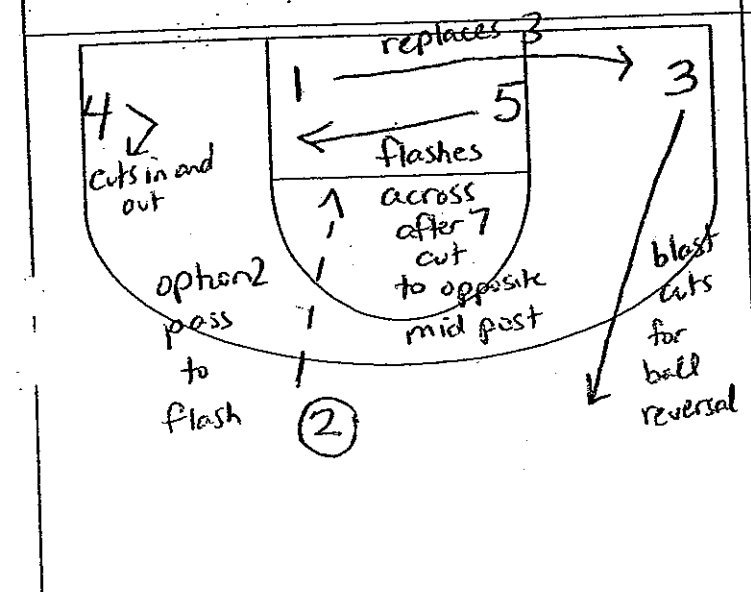 replaces 3
1
3
5
4
flashes
cuts in and
out
across
after 7
cut
to opposite
mid post
option 2
pass
to
flash
2
blast
cuts
for
ball
reversal